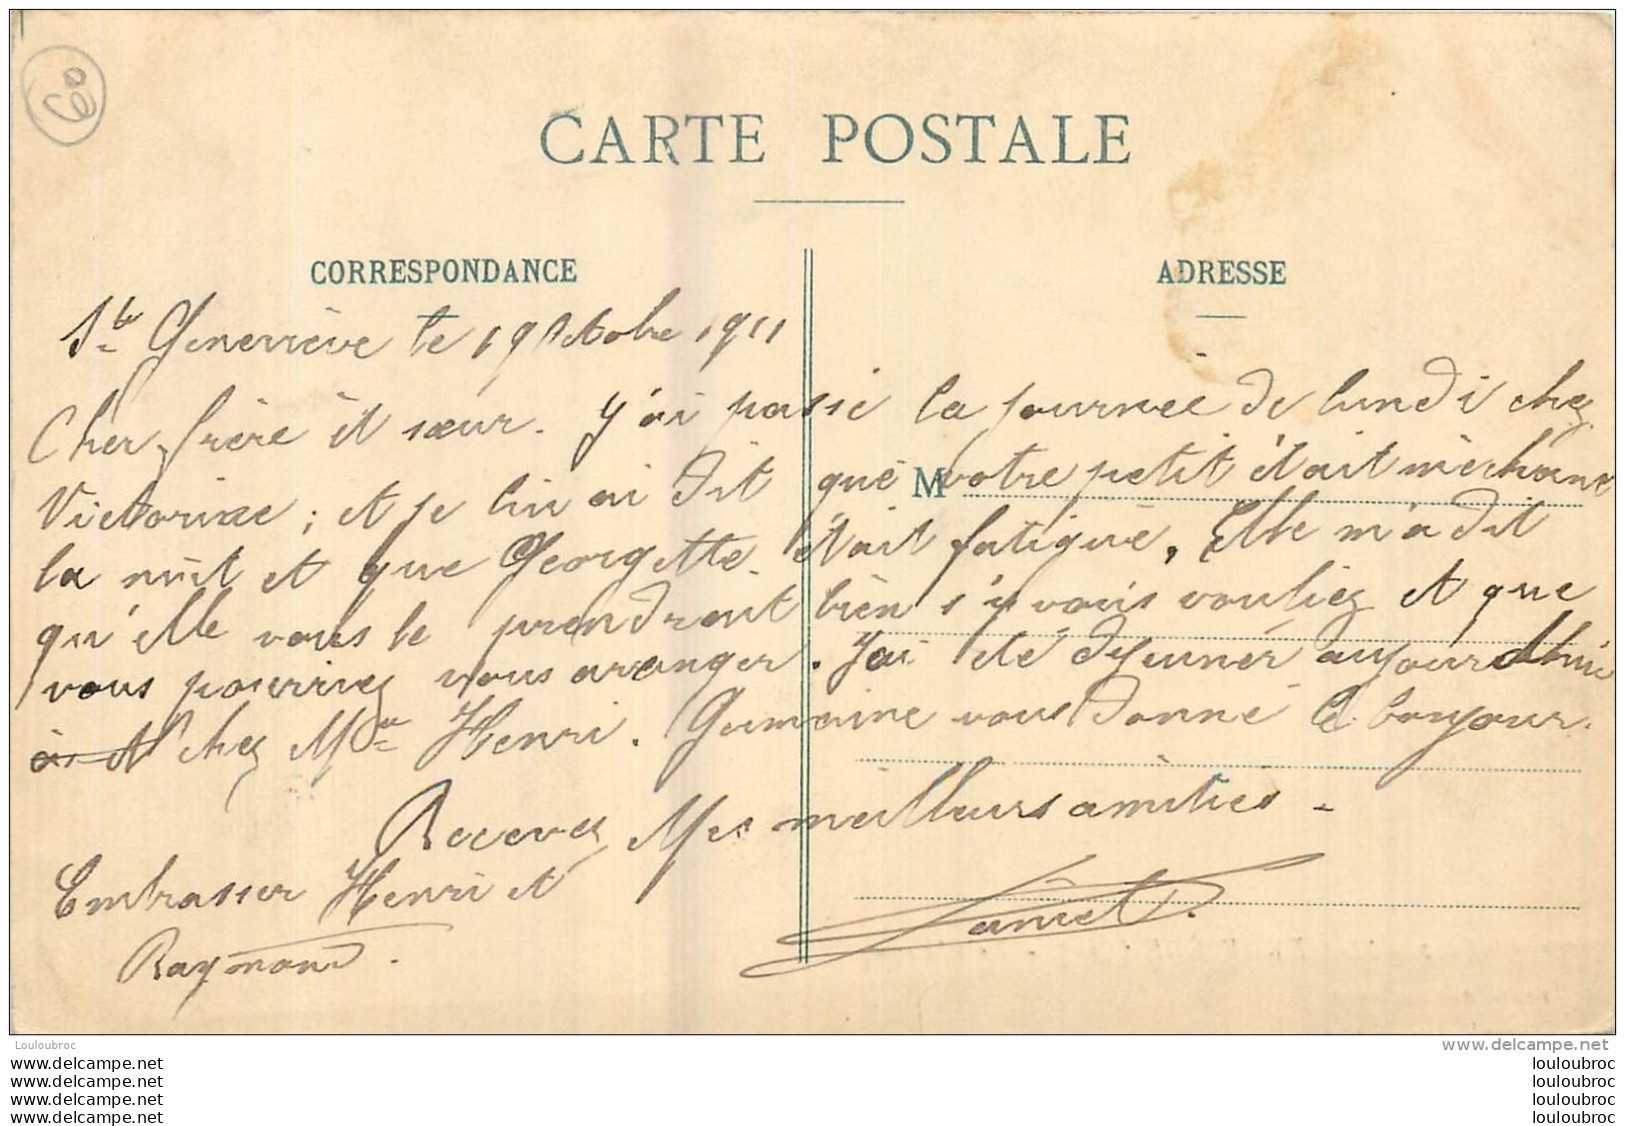 60
CARTE POSTALE
CORRESPONDANCE
ADRESSE
Ste Geneviève le 19 Octobre 1911
Cher frère et sœur. J'ai passé la journée de lundi chez
Victorine ; et je lui ai dit que votre petit était méchant
M
la nuit et que Georgette était fatigué, Elle m'a dit
qu'elle vous le prendrait bien si vous vouliez et que
vous pourriez vous aranger. J'ai été déjeuner aujourd'hui
chez Mme Henri. Germaine vous donne le bonjour.
Recevez Mes meilleurs amitiés -
Embrasser Henri et
Raymond.
Louloubroc
www.delcampe.net
www.delcampe.net
www.delcampe.net
www.delcampe.net
www.delcampe.net
louloubroc
louloubroc
louloubroc
louloubroc